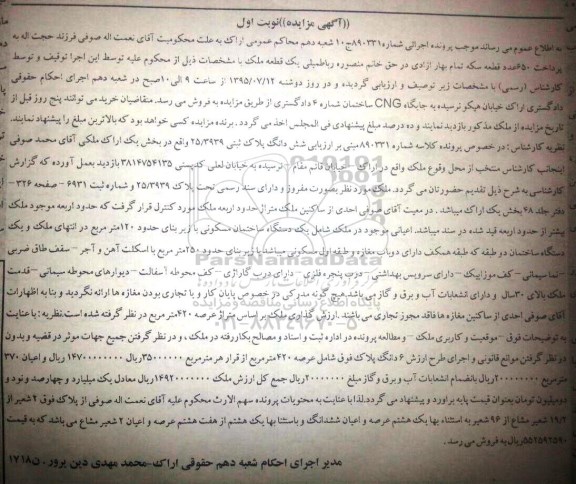 ((آگهی مزایده))نوبت اول
به اطلاع عموم می رساند موجب پرونده اجرائی شماره ۸۹۰۳۳۱ج۱۰ شعبه دهم محاکم عمومی اراک به علت محکومیت آقای نعمت اله صوفی فرزند حجت اله به
پرداخت ۶۵۰عدد قطعه سکه تمام بهار ازادی در حق خانم منصوره رباطمیلی یک قطعه ملک با مشخصات ذیل از محکوم علیه توسط این اجرا توقیف و توسط
کارشناس (رسمی) با مشخصات زیر توصیف و ارزیابی گردیده و در روز دوشنبه ۱۳۹۵/۰۷/۱۲ از ساعت ۹ الی۱۰صبح در شعبه دهم اجرای احکام حقوقی
دادگستری اراک خیابان هپکو نرسیده به جایگاه CNG ساختمان شماره ۶ دادگستری از طریق مزایده به فروش می رسد. متقاضیان خرید می توانند پنج روز قبل از
تاریخ مزایده از ملک مذکور بازدید نمایند و ده درصد مبلغ پیشنهادی فی المجلس اخذ می گردد . برنده مزایده کسی خواهد بود که بالاترین مبلغ را پیشنهاد نمایند.
نظریه کارشناس : در خصوص پرونده کلاسه شماره ۸۹۰۳۳۱ مبنی بر ارزیابی شش دانگ پلاک ثبتی ۲۵/۳۹۳۹ واقع در بخش یک اراک ملکی آقای محمد صوفی
اینجانب کارشناس منتخب از محل وقوع ملک واقع در اراک - خیابان قائم مقام - نرسیده به خیابان لعلی کدپستی ۳۸۱۴۷۵۶۱۳۵ بازدید بعمل آورده که گزارش
کارشناسی به شرح ذیل تقدیم حضورتان می گردد. ملک مورد نظر بصورت مفروز و دارای سند رسمی تحت پلاک ۲۵/۳۹۳۹ و شماره ثبت ۶۹۳۱ - صفحه ۳۲۶ -
دفتر جلد ۴۸ بخش یک اراک میباشد . در معیت آقای صوفی احدی از ساکنین ملک متراژ حدود اربعه ملک مورد کنترل قرار گرفت که حدود اربعه موجود ملک
بیشتر از حدود اربعه قید شده در سند میباشد. اعیانی موجود در ملک شامل یک دستگاه ساختمان مسکونی با زیر بنای حدود ۱۲۰متر مربع در انتهای ملک و یک
دستگاه ساختمان دو طبقه که طبقه همکف دارای دوباب مغازه و طبقه اول مسکونی میباشد با زیر بنای حدود ۲۵۰متر مربع با اسکلت آهن و آجر - سقف طاق ضربی
- نما سیمانی - کف موزاییک - دارای سرویس بهداشتی - درب پنجره فلزی - دارای درب گاراژی - کف محوطه آسفالت - دیوارهای محوطه سیمانی - قدمت
ملک بالای ۳۰سال و دارای انشعابات آب و برق و گاز می باشد. هیچ گونه مدرکی در خصوص پایان کار و یا تجاری بودن مغازه ها ارائه نگردید و بنا به اظهارات
آقای صوفی احدی از ساکنین مغازه ها فاقد مجوز تجاری می باشند . ارزش گذاری ملک بر اساس متراژ عرصه ۴۲۰متر مربع در نظر گرفته شده است.نظریه : با عنایت
به توضیحات فوق - موقعیت و کاربری ملک - و مطالعه پرونده در اداره ثبت و اسناد و مصالح بکار رفته در ملک ، و در نظر گرفتن جمیع جهات موثر در قضیه و بدون
در نظر گرفتن موانع قانونی و اجرای طرح ارزش ۶ دانگ پلاک فوق شامل عرصه ۴۲۰مترمربع از قرار هر مترمربع ۳۵۰۰۰۰۰۰ریال ۱۴۷۰۰۰۰۰۰۰۰ ریال و اعیان ۳۷۰
مترمربع ۲۰۰۰۰۰۰۰۰ریال بانضمام انشعابات آب و برق و گاز مبلغ ۲۰۰۰۰۰۰۰ریال جمع کل ارزش ملک ۱۴۹۲۰۰۰۰۰۰۰ ریال معادل یک میلیارد و چهارصد ونود و
دومیلیون تومان بعنوان قیمت پایه براورد و پیشنهاد می گردد.لذا با عنایت به محتویات پرونده سهم الارث محکوم علیه آقای نعمت اله صوفی از پلاک فوق ۲ شعیر از
۱۹/۲ شعیر مشاع از ۹۶ شعیر به استثناء بها یک هشتم عرصه و اعیان ششدانگ و باستثنا بها یک هشتم از هفت هشتم عرصه و اعیان ۲ شعیر مشاع می باشد که به قیمت
۵۵۲۵۹۲۵۹۰ریال به فروش می رسد.
مدیر اجرای احکام شعبه دهم حقوقی اراک-محمد مهدی دین پرور . ن۱۷۱۸
ParsNamadData
۰۲۱-۸۸۳۴۹۶۷۰-۵